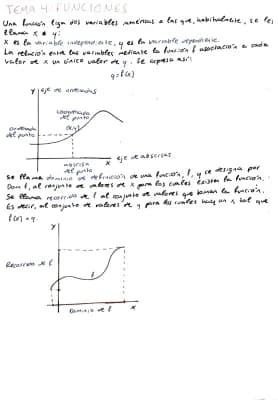 TEMA 4: FUNCIONES
Una función liga dos variables numéricas a las que, habitualmente, se les
llama x e y:
x es la variable independiente, y es la variable dependiente.
La relación entre las variables mediante la función f asociación a cada
valor de x un único valor de y. Se expresa así:
y=f(x)
y eje de ordenadas
coordenada
del punto
ordenada
del punto
(x,y)
x eje de abscisas
abscisa
del punto
Se llama dominio de definición de una función, f, y se designa por
Dom f, al conjunto de valores de x para los cuales existe la función.
Se llama recorrido de f al conjunto de valores que toman la función.
Es decir, al conjunto de valores de y para los cuales hay un x tal que
f(x)=y.
y
Recorrido de f
f
Dominio de f
x